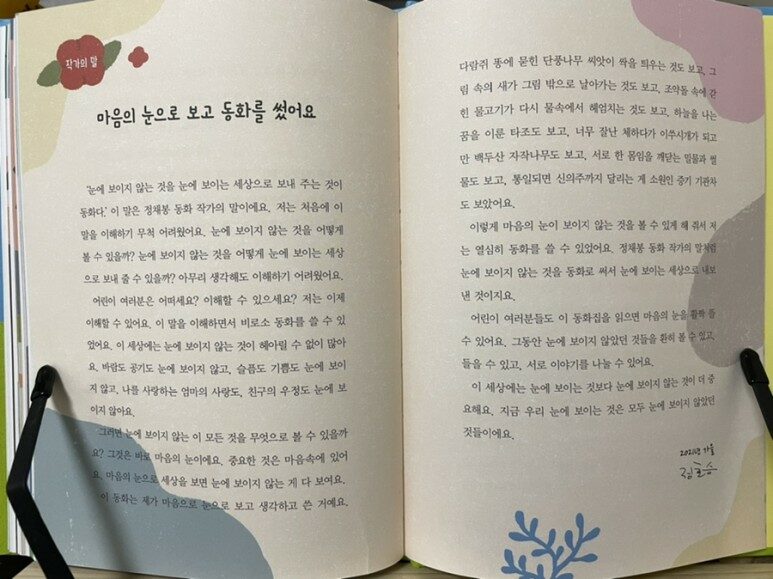 작가의 말
마음의 눈으로 보고 동화를 썼어요
‘눈에 보이지 않는 것을 눈에 보이는 세상으로 보내 주는 것이
동화다.’ 이 말은 정채봉 동화 작가의 말이에요. 저는 처음에 이
말을 이해하기 무척 어려웠어요. 눈에 보이지 않는 것을 어떻게
볼 수 있을까? 눈에 보이지 않는 것을 어떻게 눈에 보이는 세상
으로 보내 줄 수 있을까? 아무리 생각해도 이해하기 어려웠어요.
어린이 여러분은 어떠세요? 이해할 수 있으세요? 저는 이제
이해할 수 있어요. 이 말을 이해하면서 비로소 동화를 쓸 수 있
었어요. 이 세상에는 눈에 보이지 않는 것이 헤아릴 수 없이 많아
요. 바람도 공기도 눈에 보이지 않고, 슬픔도 기쁨도 눈에 보이
지 않고, 나를 사랑하는 엄마의 사랑도, 친구의 우정도 눈에 보
이지 않아요.
그러면 눈에 보이지 않는 이 모든 것을 무엇으로 볼 수 있을까
요? 그것은 바로 마음의 눈이에요. 중요한 것은 마음속에 있어
요. 마음의 눈으로 세상을 보면 눈에 보이지 않는 게 다 보여요.
이 동화는 제가 마음으로 눈으로 보고 생각하고 쓴 거예요.
다람쥐 똥에 묻힌 단풍나무 씨앗이 싹을 틔우는 것도 보고, 그
림 속의 새가 그림 밖으로 날아가는 것도 보고, 조약돌 속에 갇
힌 물고기가 다시 물속에서 헤엄치는 것도 보고, 하늘을 나는
꿈을 이룬 타조도 보고, 너무 잘난 체하다가 이쑤시개가 되고
만 백두산 자작나무도 보고, 서로 한 몸임을 깨닫는 밀물과 썰
물도 보고, 통일되면 신의주까지 달리는 게 소원인 증기 기관차
도 보았어요.
이렇게 마음의 눈이 보이지 않는 것을 볼 수 있게 해 줘서 저
는 열심히 동화를 쓸 수 있었어요. 정채봉 동화 작가의 말처럼
눈에 보이지 않는 것을 동화로 써서 눈에 보이는 세상으로 내보
낸 것이지요.
어린이 여러분들도 이 동화집을 읽으면 마음의 눈을 활짝 뜰
수 있어요. 그동안 눈에 보이지 않았던 것들을 환히 볼 수 있고,
들을 수 있고, 서로 이야기를 나눌 수 있어요.
이 세상에는 눈에 보이는 것보다 눈에 보이지 않는 것이 더 중
요해요. 지금 우리 눈에 보이는 것은 모두 눈에 보이지 않았던
것들이에요.
2021년 가을
정호승